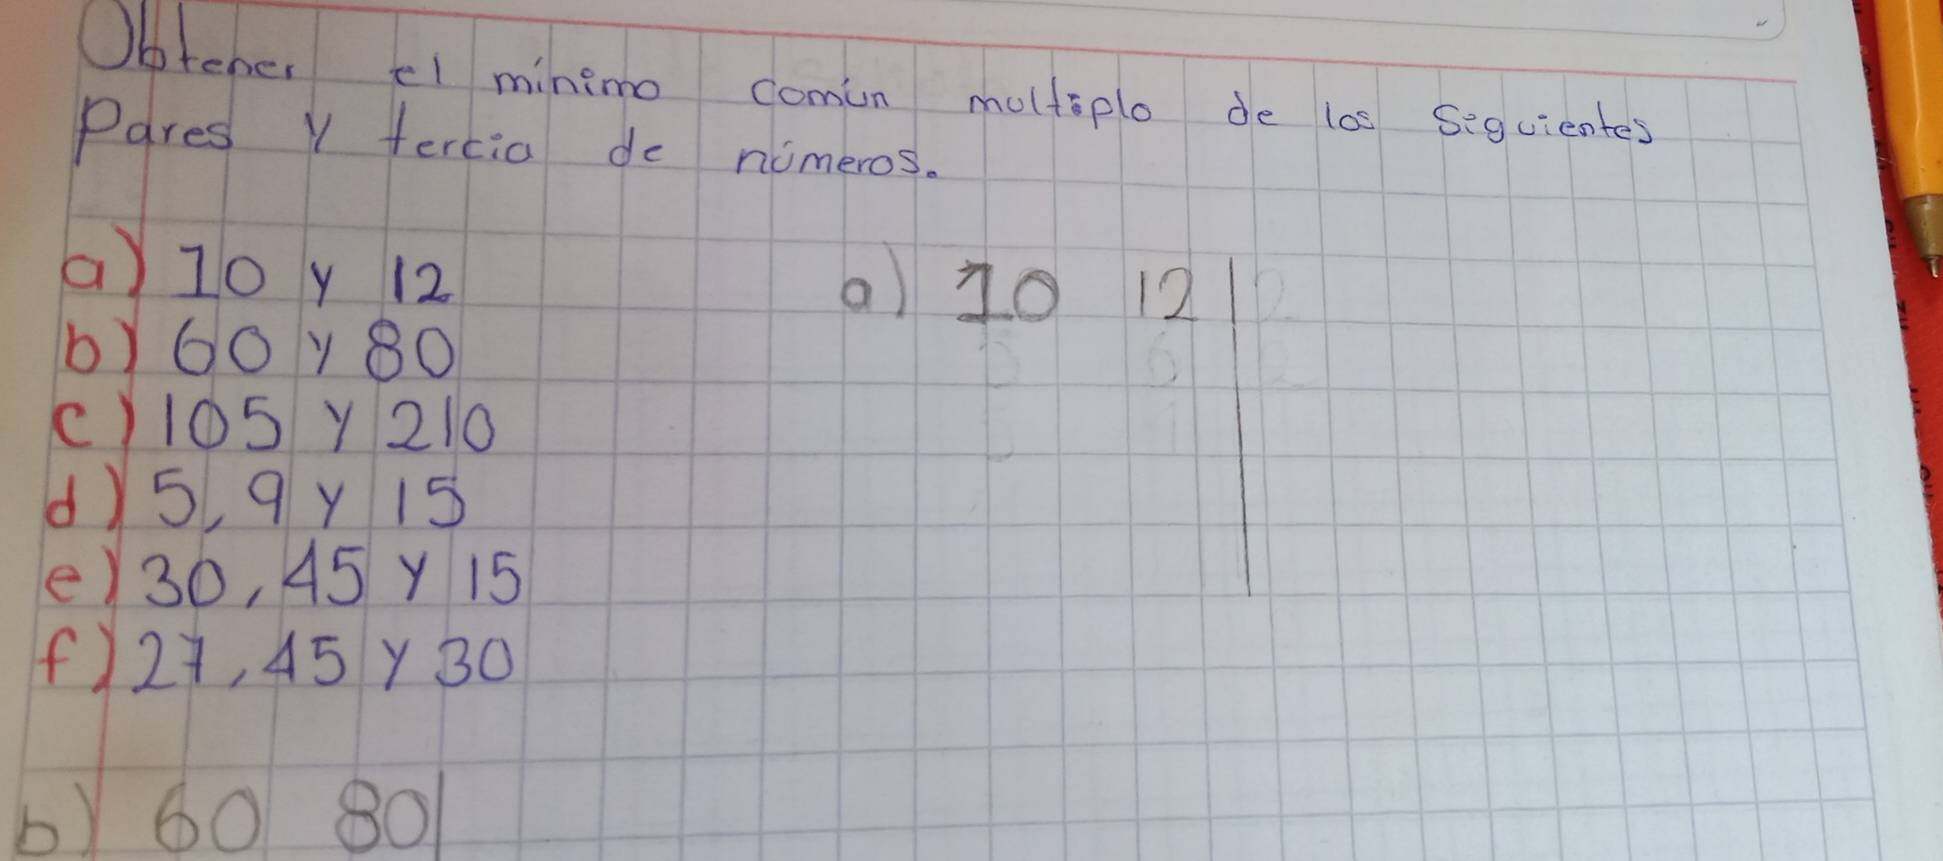 Obtener el mínimo común multiplo de los siguientes
Pares y tercia de números.
a) 10 y 12
b) 60 y 80
c) 105 y 210
d) 5, 9 y 15
e) 30, 45 y 15
f) 27, 45 y 30
a) 10 12 | 2
5 6 2
b) 60 80 |